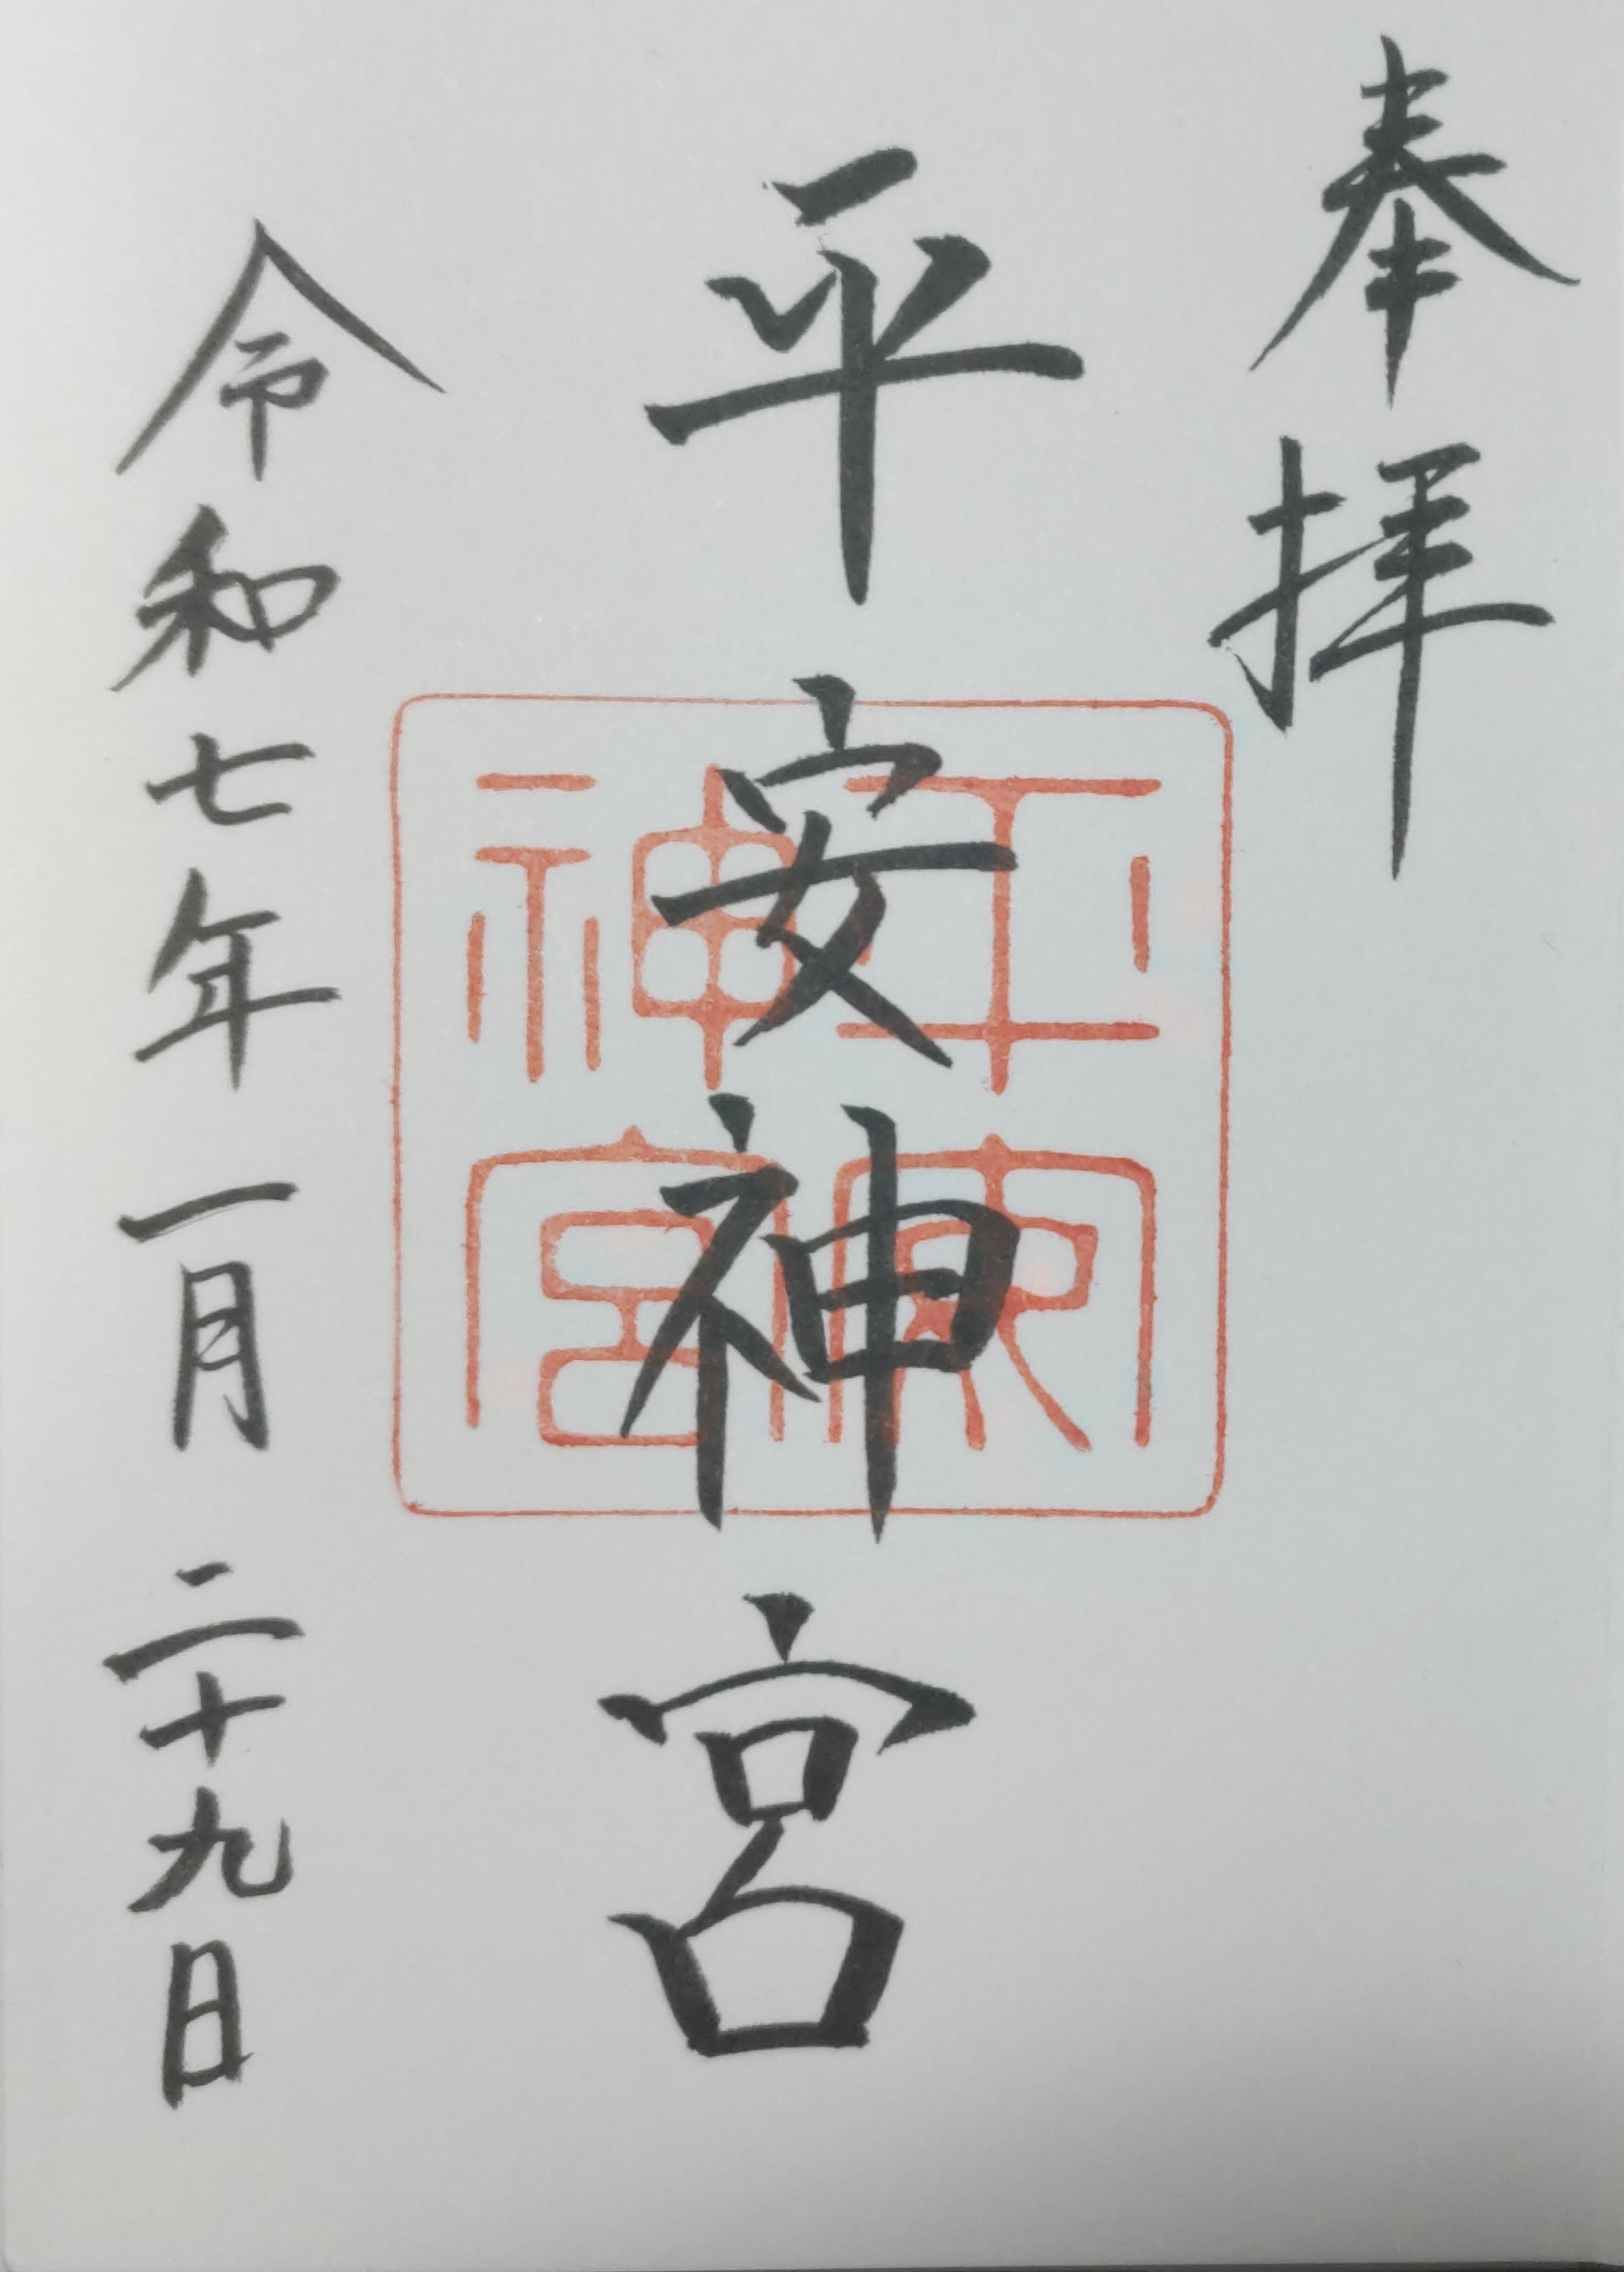 奉拝
平安神宮
平安神宮
令和七年一月二十九日